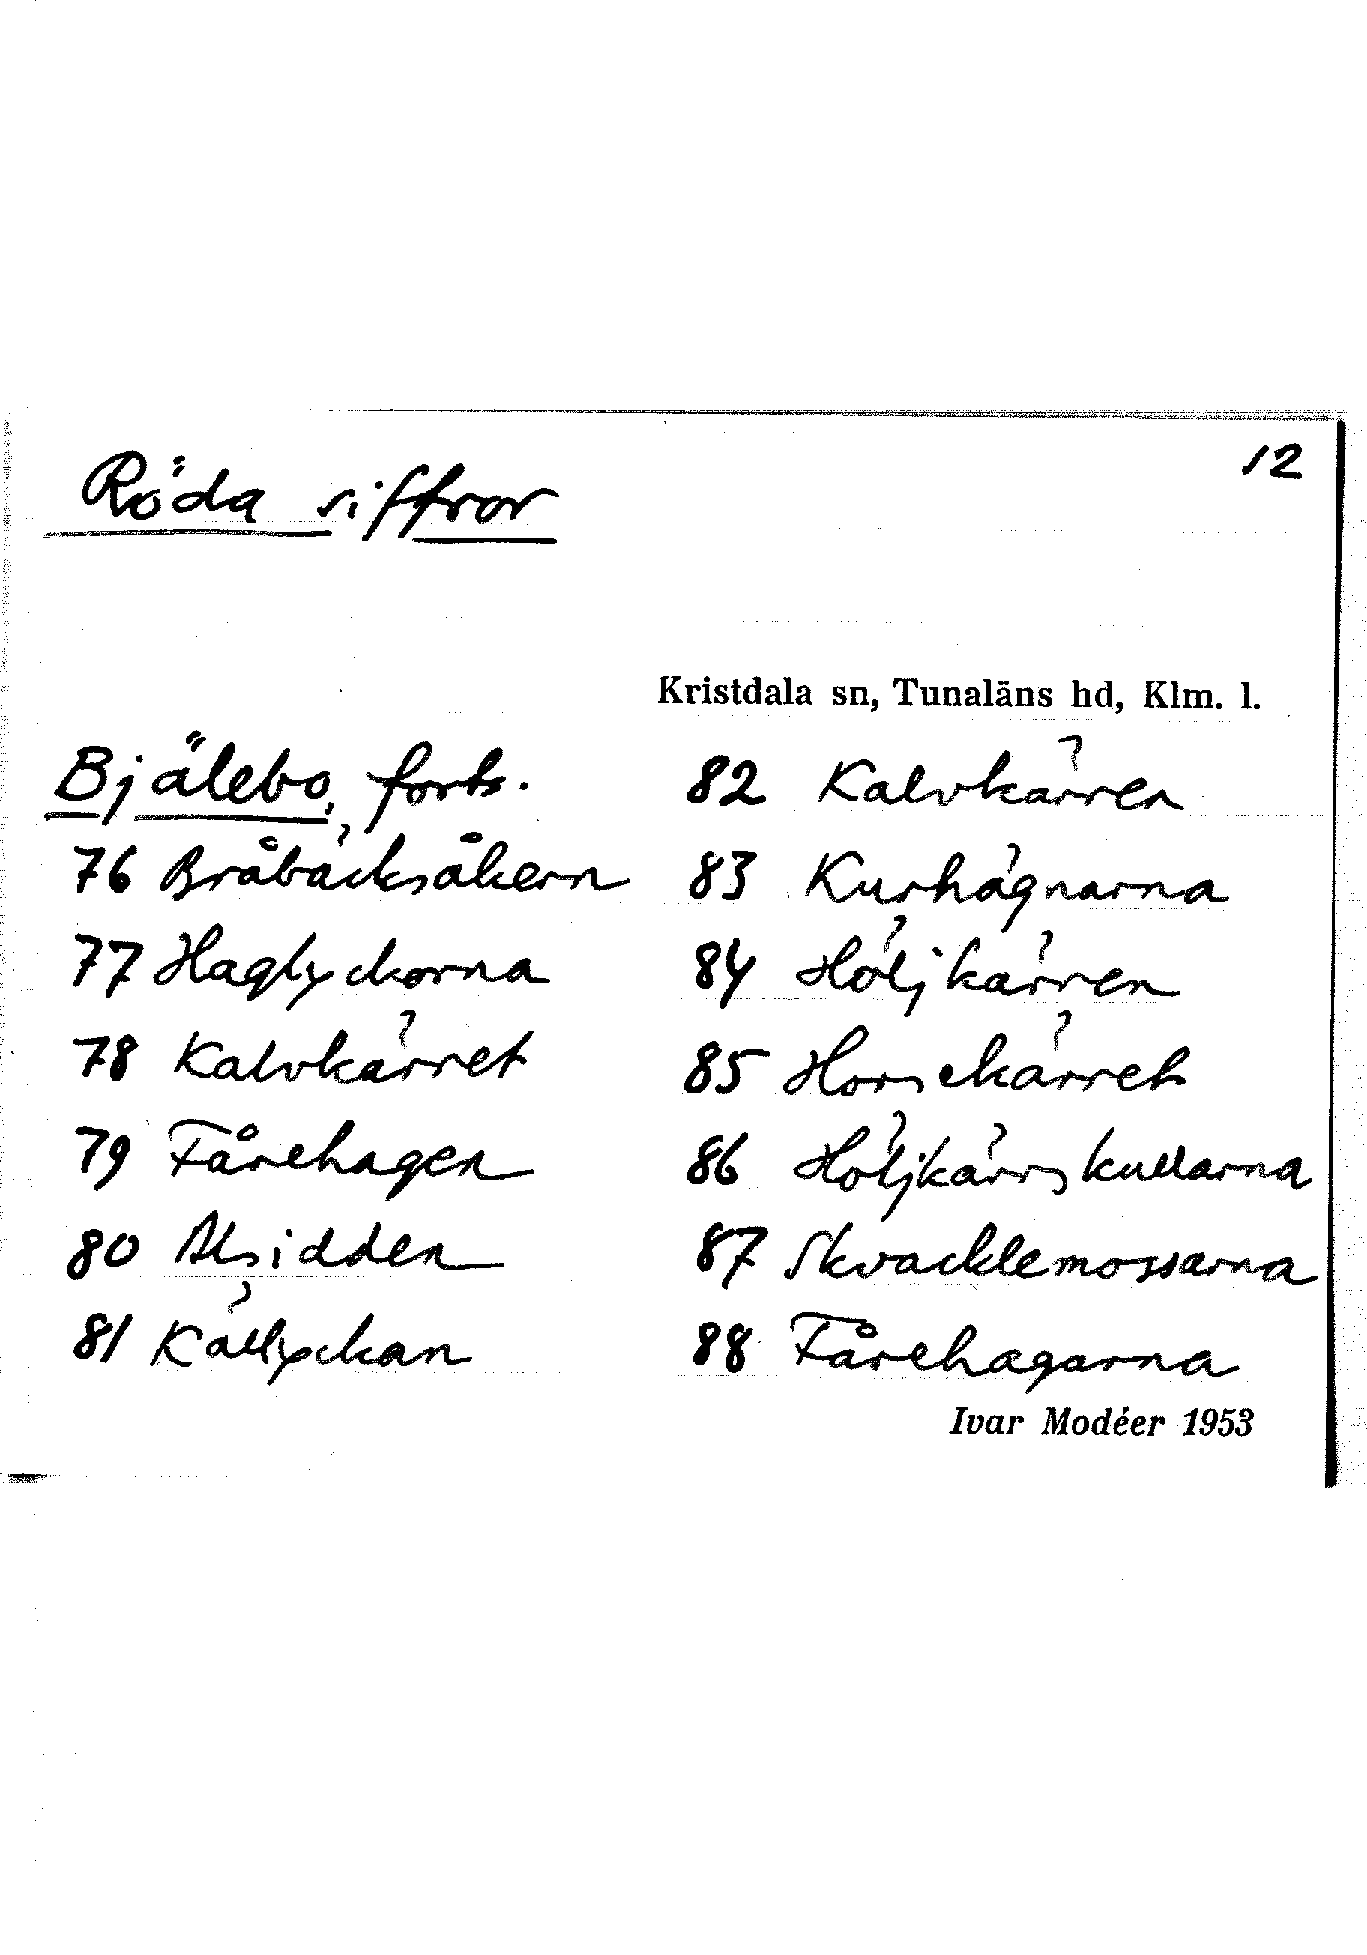 12
Röda siffror
Kristdala sn, Tunaläns hd, Klm. l.
Bjälebo, forts.
76 Bråbäcksåkern
77 Haglyckorna
78 Kalvkärret
79 Fårehagen
80 Alsidden
81 Källyckan
82 Kalvkärren
83 Kurhägnarna
84 Höljkärren
85 Horsekärret
86 Höljkärrskullarna
87 Skvacklemossarna
88 Fårehagarna
Ivar Modéer 1953